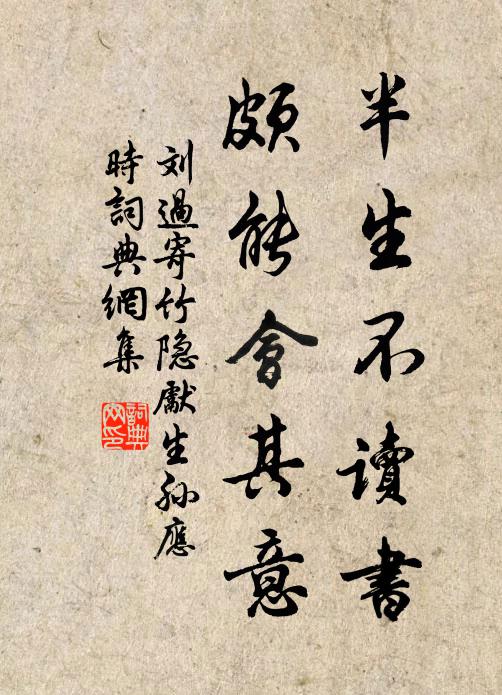 半生不讀書
頗能會其意
刘過寄竹隐獻生孙應
時詞典網集
詞典
网印